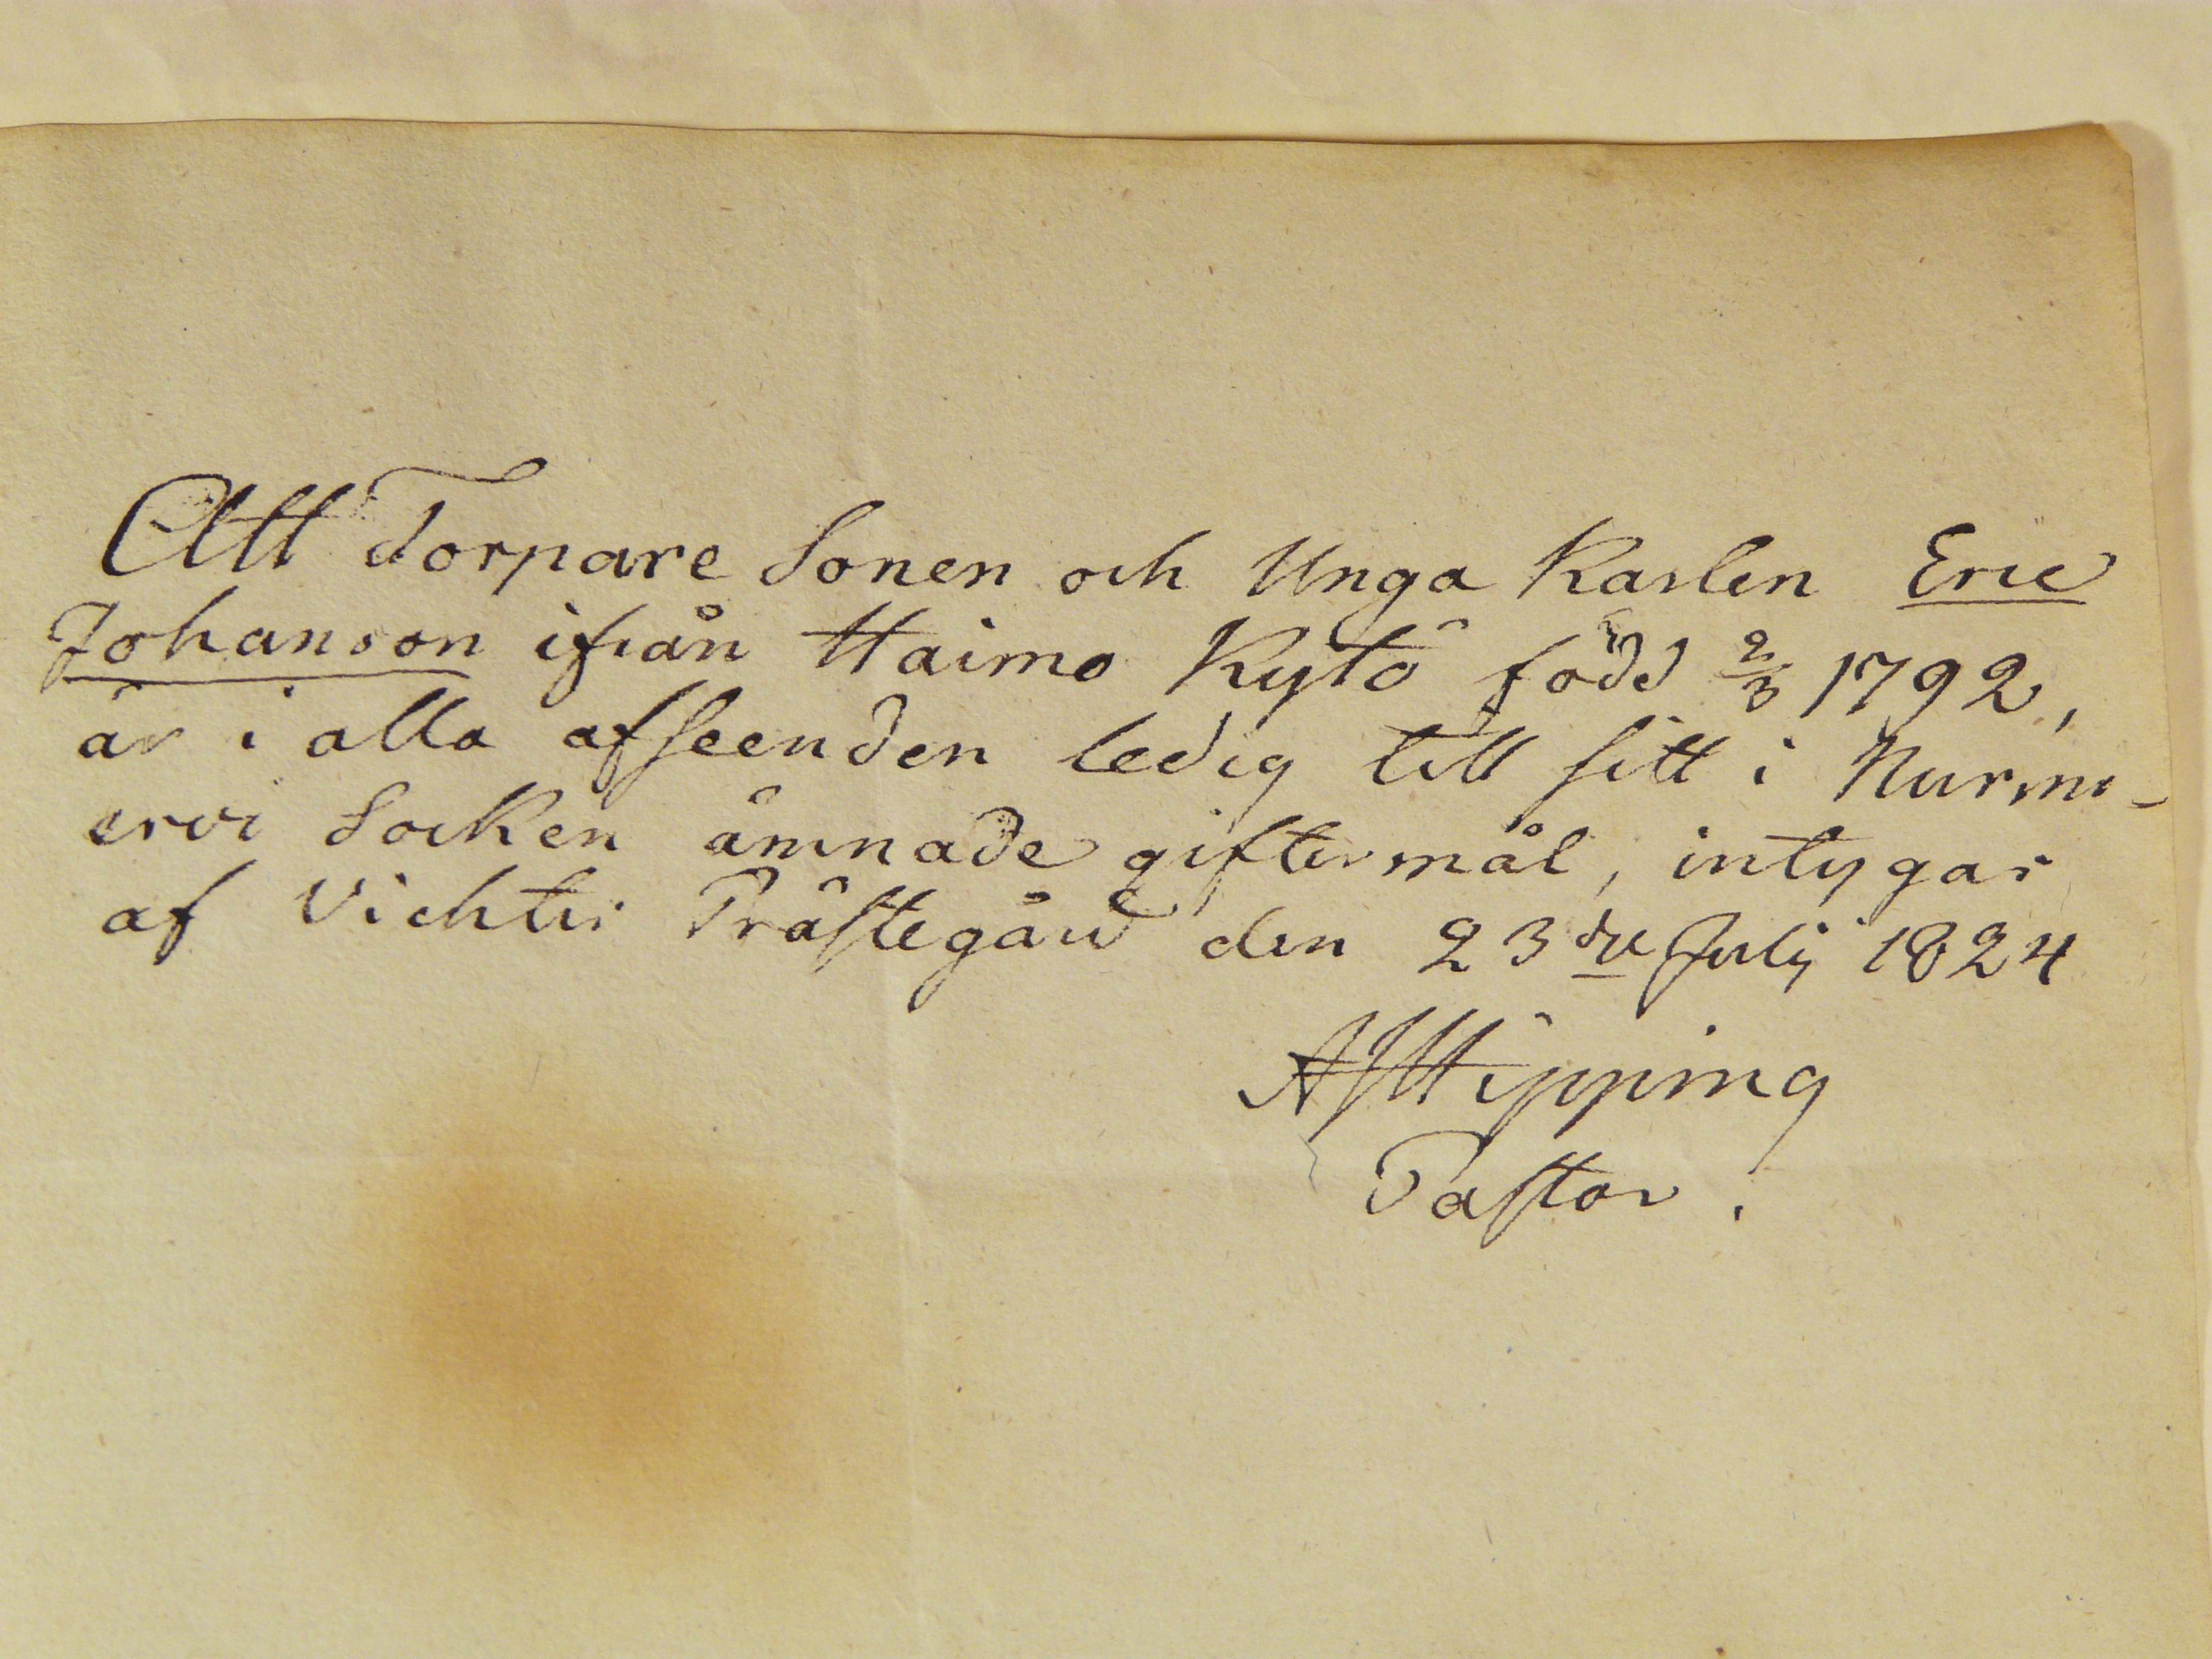 Att Torpare Sonen och Unga Karlen Eric
Johanson ifrån Haimo Kytö född 2/3 1792,
är i alla afseenden ledig till sitt i Nurmi-
ervi Socken ämnade giftermål, intygar
af Vichtis Prästegård den 23dje Julij 1824
AJHipping
Pastor.